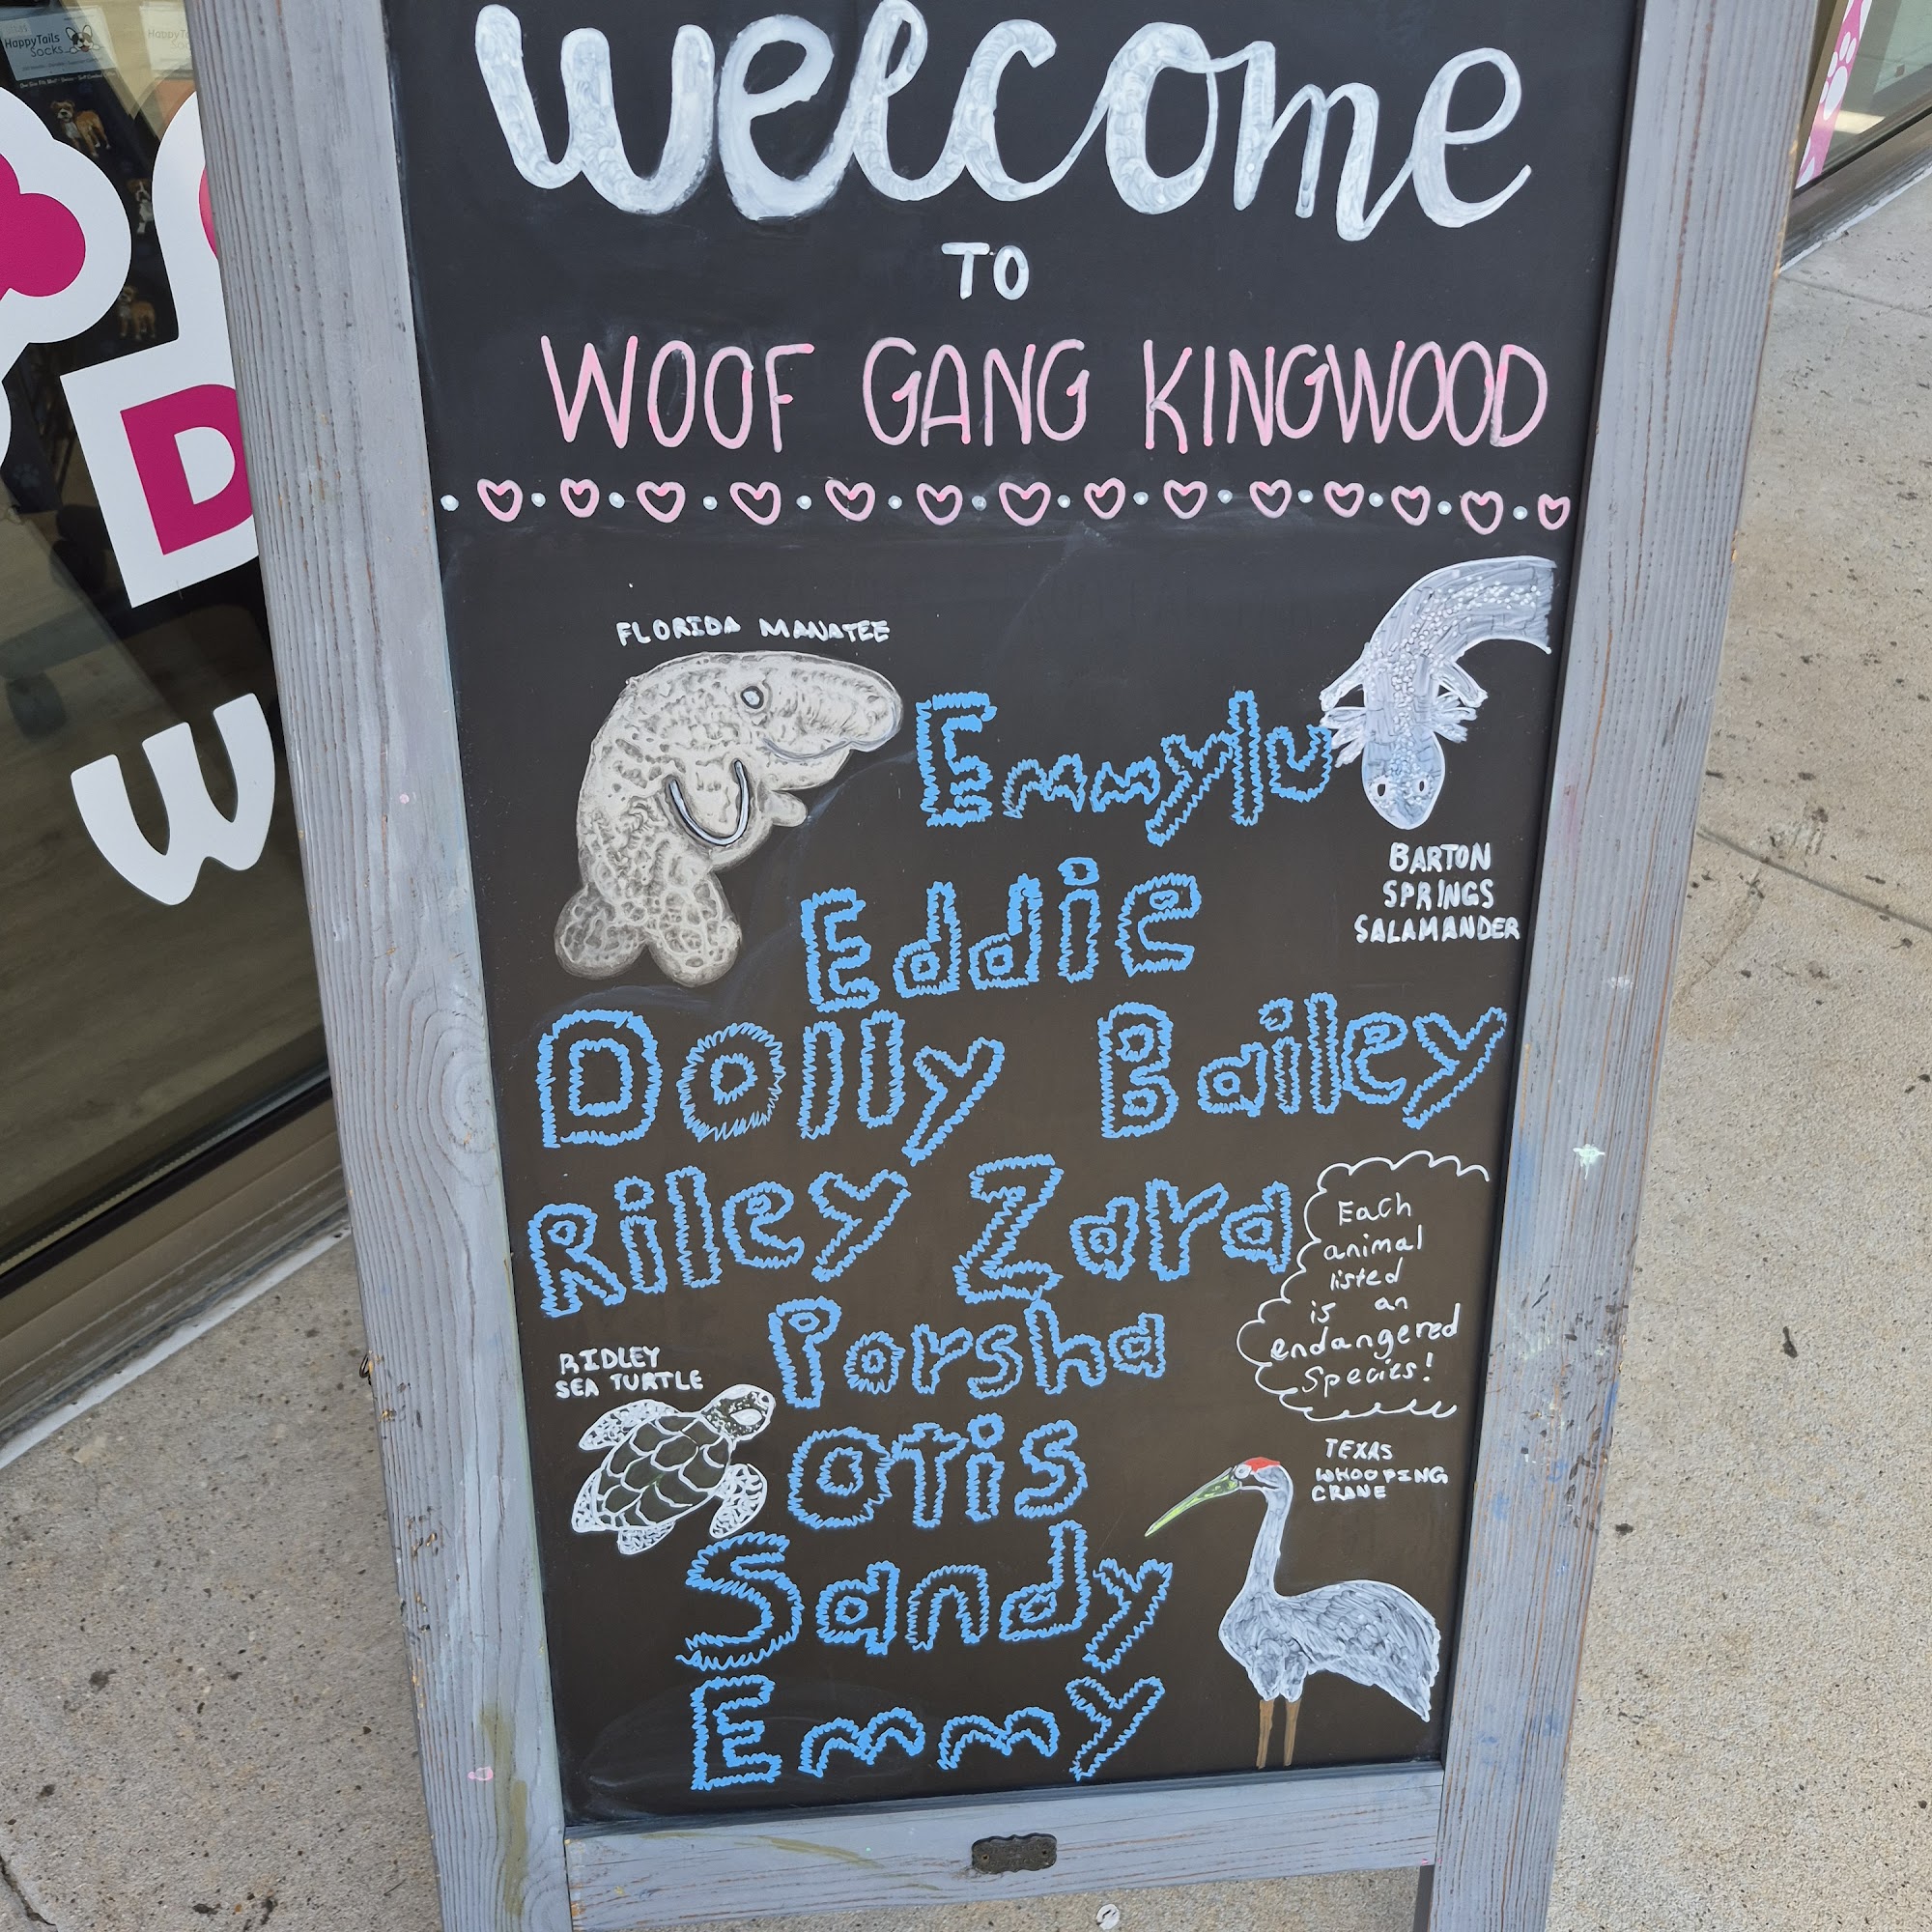 HappyTails
Socks
welcome
TO
WOOF GANG KINGWOOD
FLORIDA MANATEE
Emmylu
BARTON
SPRINGS
SALAMANDER
Eddie
Dolly Bailey
Riley Zara
Each
animal
listed
is an
endangered
Species!
Porsha
RIDLEY
SEA TURTLE
Otis
TEXAS
WHOOPING
CRANE
Sandy
Emmy
D
W